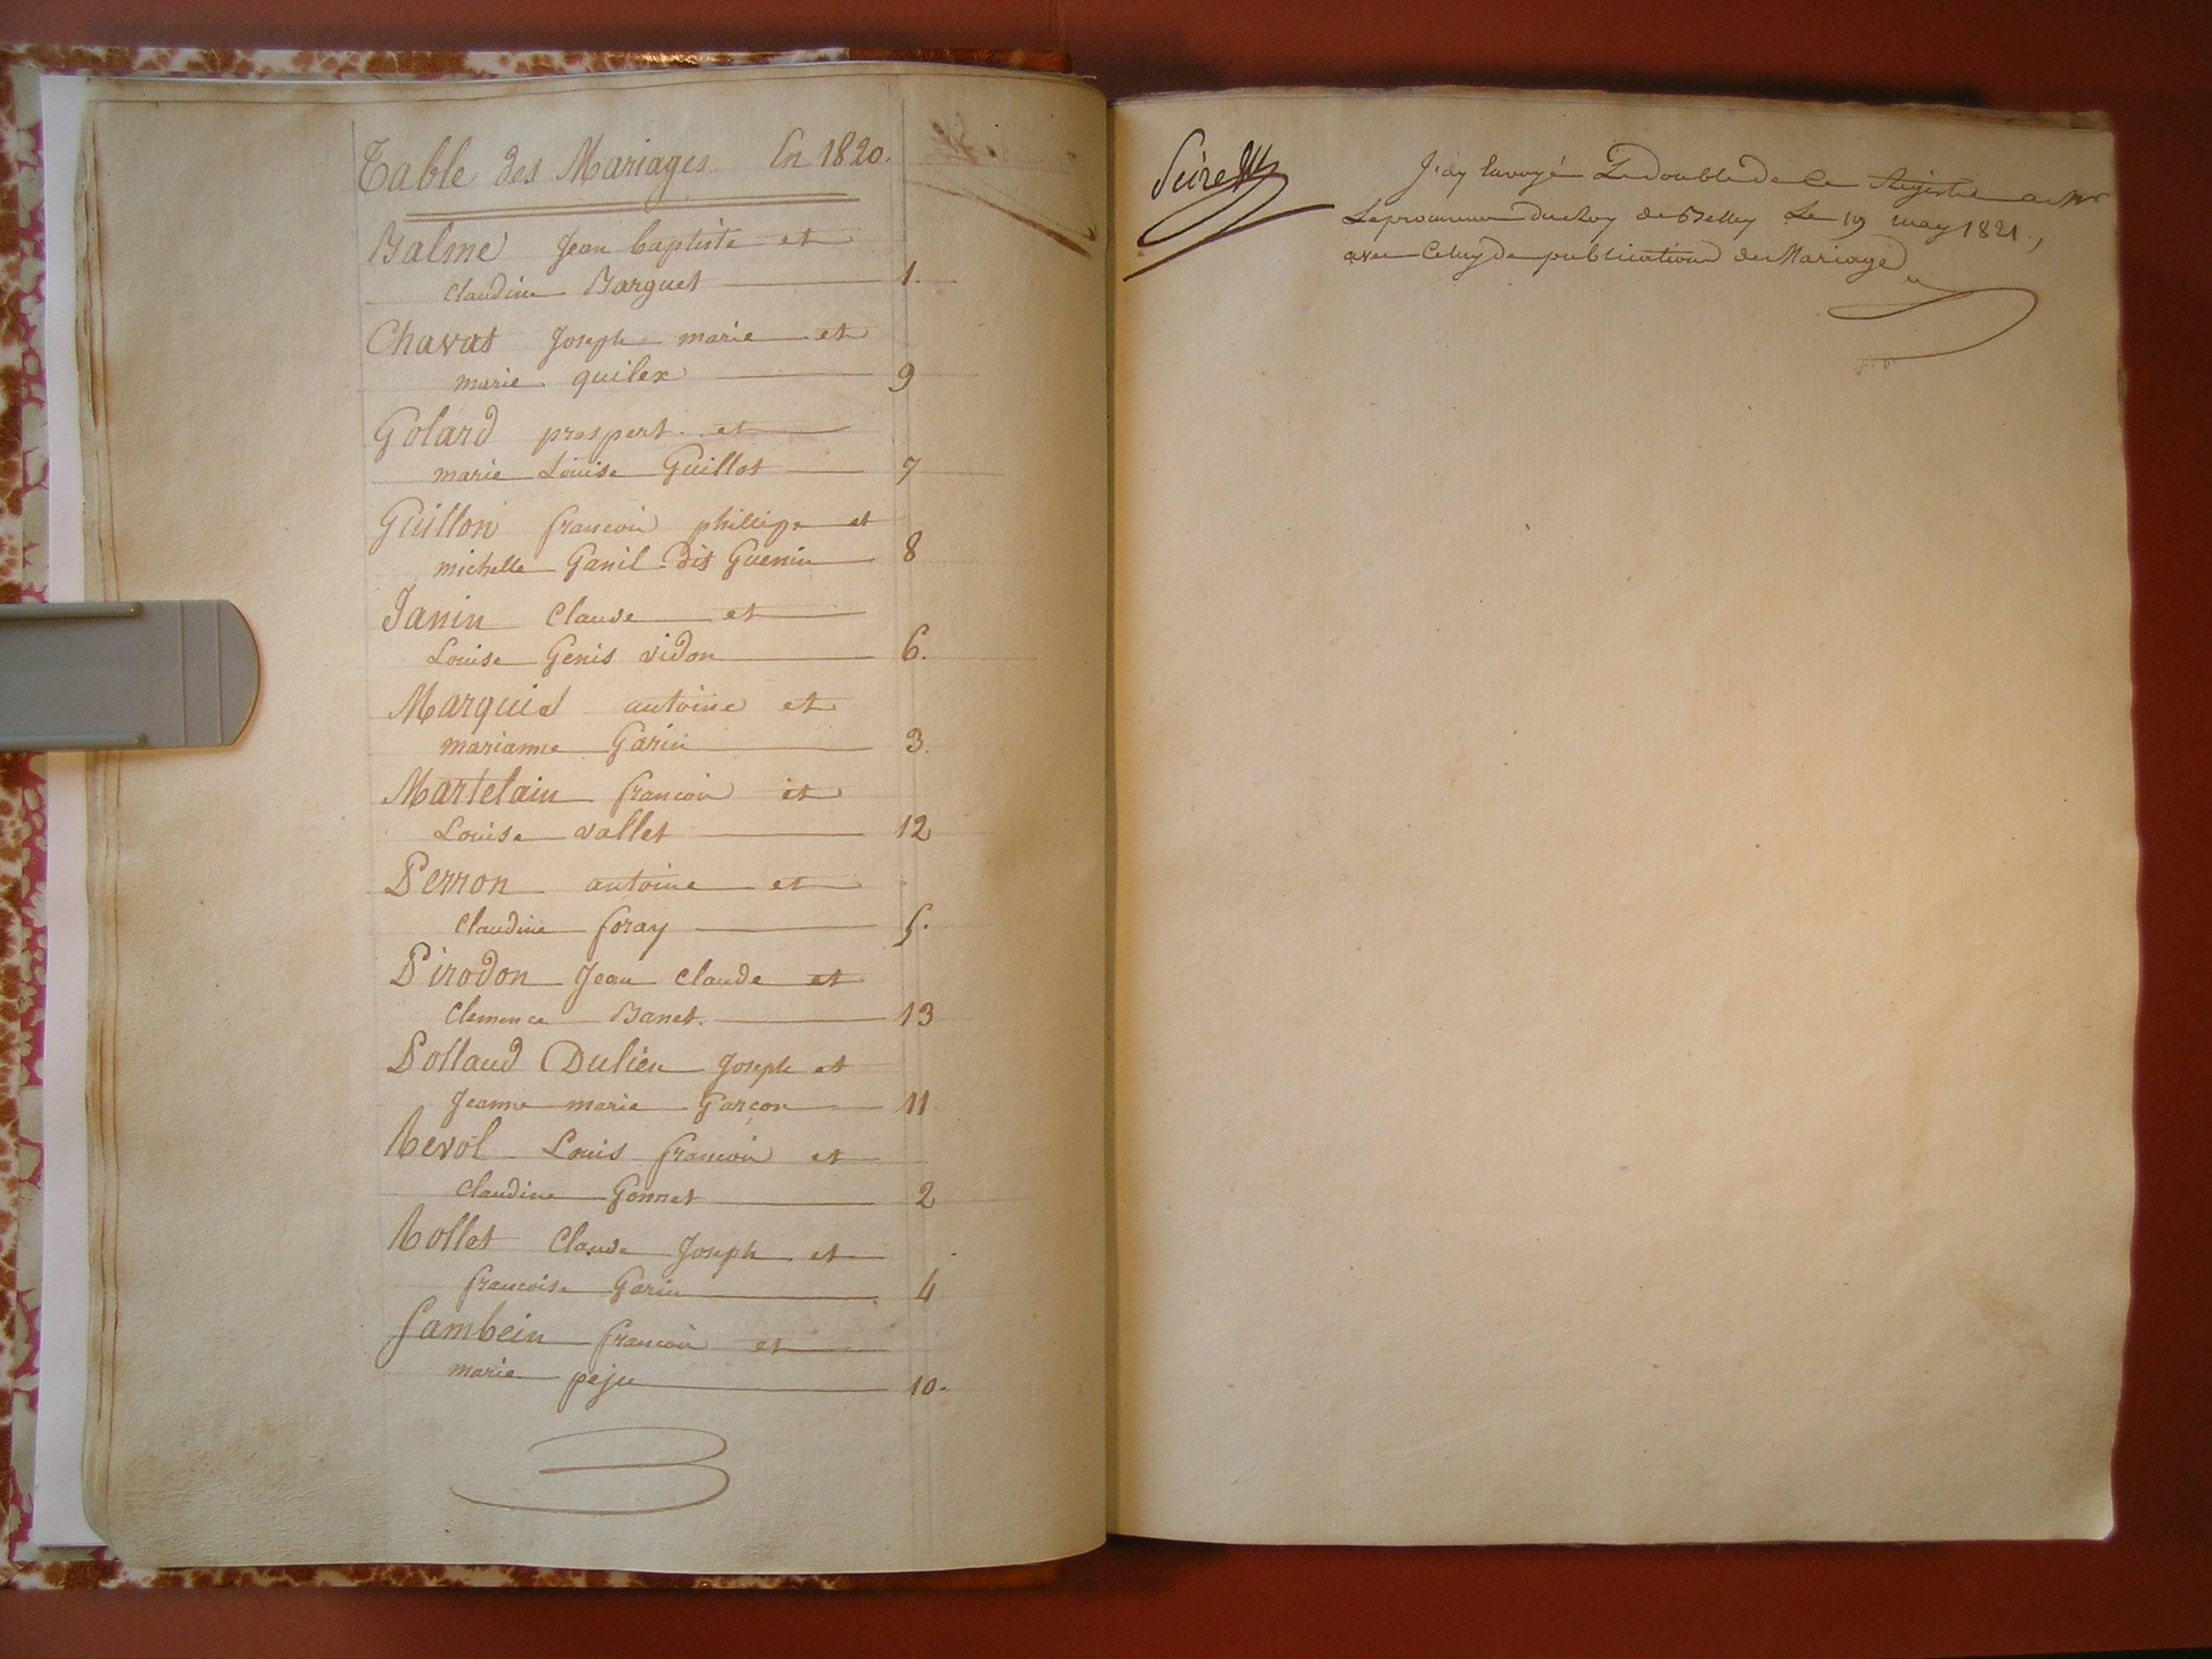 Table des Mariages En 1820.
Balme Jean baptiste et
Claudine Barquet 1.
Chavat Joseph marie et
marie quilex 9
Golard prospert et
marie Louise Guillot 7
Guillon francois phillipe et
michelle Ganil dit Guenin 8
Janin Claude et
Louise Genis vidon 6.
Marquis antoine et
marianne Garin 3.
Martelain francois et
Louise vallet 12
Perron antoine et
Claudine foray 5.
Pirodon Jean Claude et
Clemence Banet. 13
Pollaud Dulieu Joseph et
Jeanne marie Garçon 11
Revol Louis francois et
Claudine Gonnet 2
Rollet Claude Joseph et
francoise Garin 4
Sambein francois et
marie peju 10.
J'ay Envoyé Le double de Ce Registre a Mr
Le procureur du Roy de Belley Le 19 may 1821.,
avec Celuy de publication de Mariage